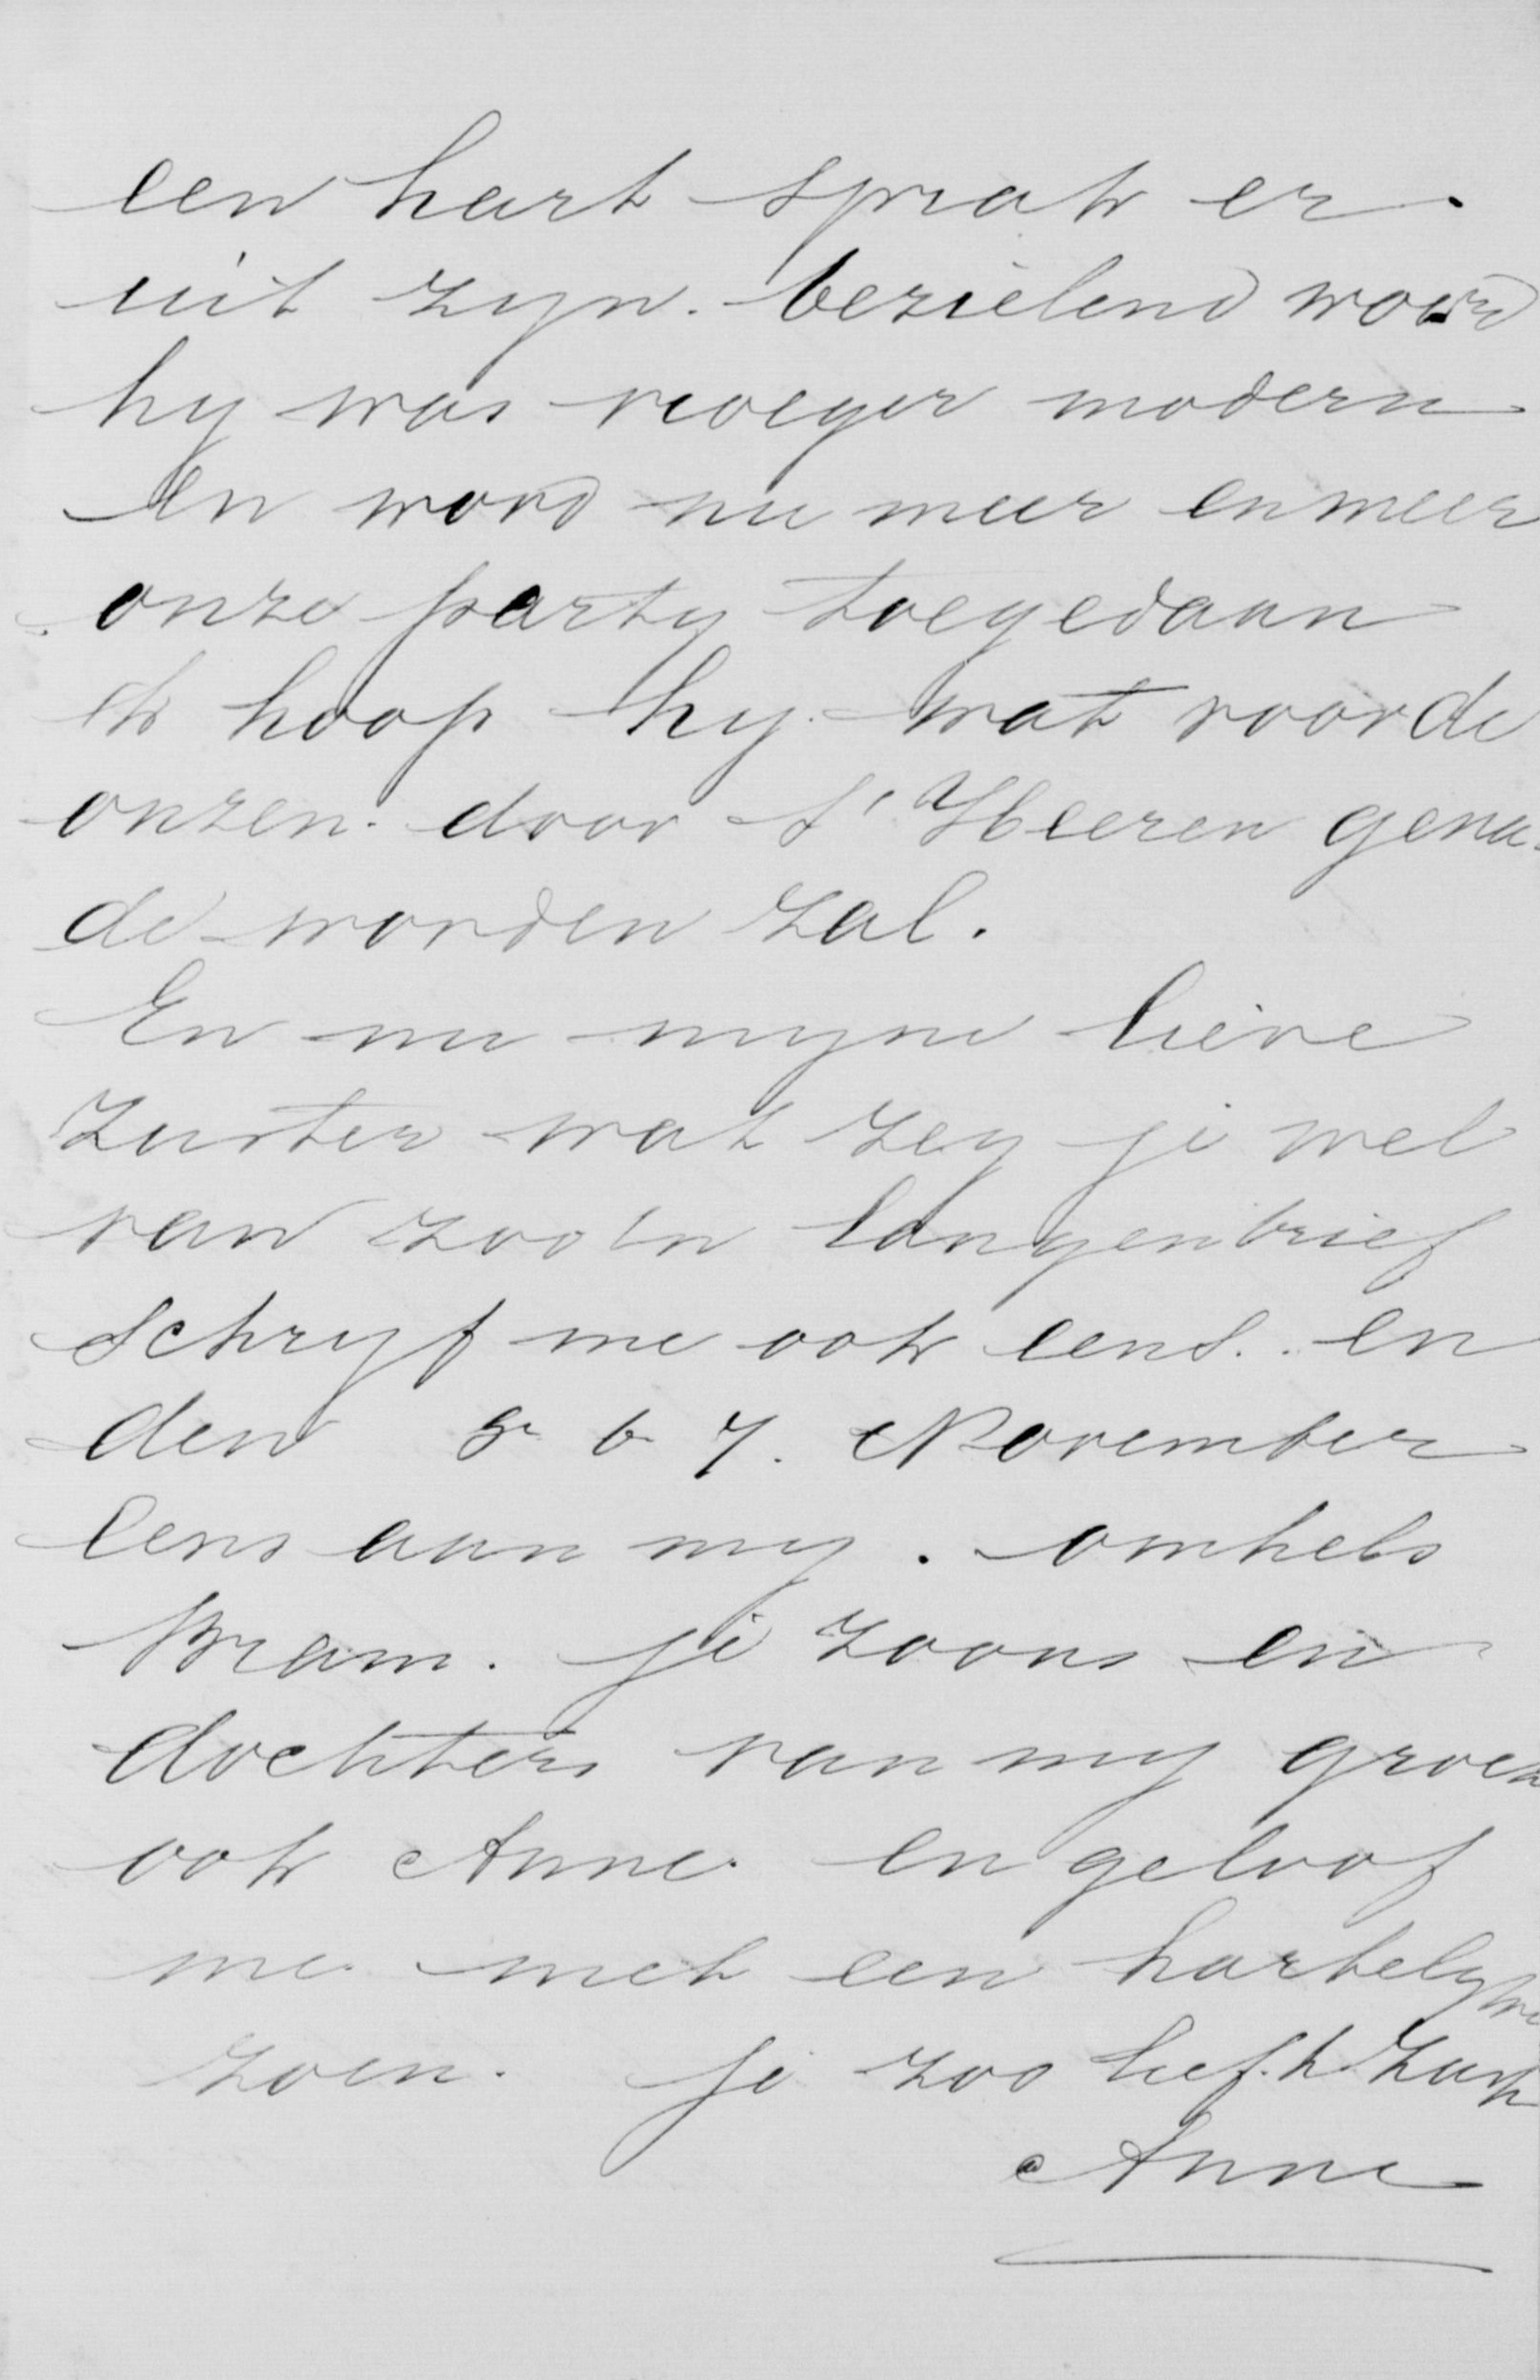 een hart sprak er.
uit zyn. bezielend woord
hy was vroeger modern
en word nu meer en meer
onze party toegedaan
ik hoop hy. wat voor de
onzen. door s' Heeren gena-
de worden zal.
En nu myne lieve
Zuster wat zeg je wel
van zoo'n langen brief
schryf me ook eens.. en
den 5 6 7. November
eens aan my. omhels
Bram. je zoons en
dochters van my groet
ook Anne. en geloof
me. met een hartelyke
zoen. je zoo liefh. Zust
Anne